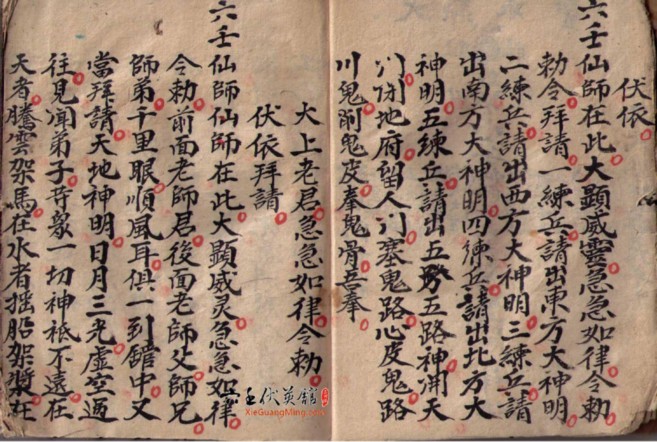 伏依
六壬仙師在此大顯威靈急急如律令勅
勅令拜請一練兵請出東方大神明
二練兵請出西方大神明三練兵請
出南方大神明四練兵請出北方大
神明五練兵請出五路神開天
门闭地府留人门塞鬼路心皮鬼路
鬼削鬼皮奉鬼骨吾奉
大上老君急急如律令勅
伏依拜請
六壬仙師仙師在此大顯威灵急急如律
令勅前面老師君後面老師父師兄
師弟千里眼順風耳俱一到舘中又
當拜請天地神明日月三光虛空過
往見闻弟子等衆一切神祗不遠在
天者騰雲架馬在水者摇船架槳在
伏英舘
XieGuangMing.com